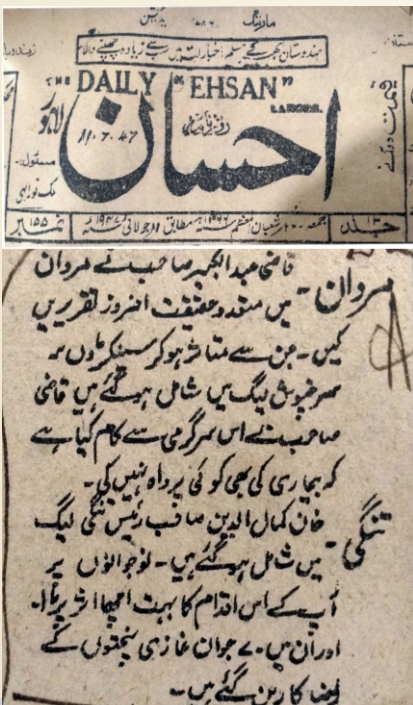 مارننگ ۷۸۶ ایڈیشن
ہندوستان بھر کے مسلم اخبارات میں سب سے زیادہ چھپنے والا
THE DAILY "EHSAN"
LAHORE.
احسان
لاہور
روزنامہ
11.7.47
مسئول:۔
ملک نور الہی
قیمت دو آنے
جلد ۱۳
جمعہ ۲۰ شعبان المعظم ۱۳۶۶ھ مطابق ۱۱ جولائی ۱۹۴۷ء
نمبر ۱۵۵
مردان۔ قاضی عبد الکبیر صاحب نے مردان
میں متعدد حقیقت افروز تقریریں
کیں۔ جن سے متاثر ہو کر سینکڑوں
سرخپوش لیگ میں شامل ہو گئے ہیں قاضی
صاحب نے اس سرگرمی سے کام کیا ہے
کہ بیماری کی بھی کوئی پرواہ نہیں کی۔
تنگی۔ خان کمال الدین صاحب رئیس تنگی لیگ
میں شامل ہو گئے ہیں۔ نوجوانوں پر
آپ کے اس اقدام کا بہت اچھا اثر پڑا۔
اور ان میں ۷۰ جوان غازی پختوں کے
رضا کار بن گئے ہیں۔